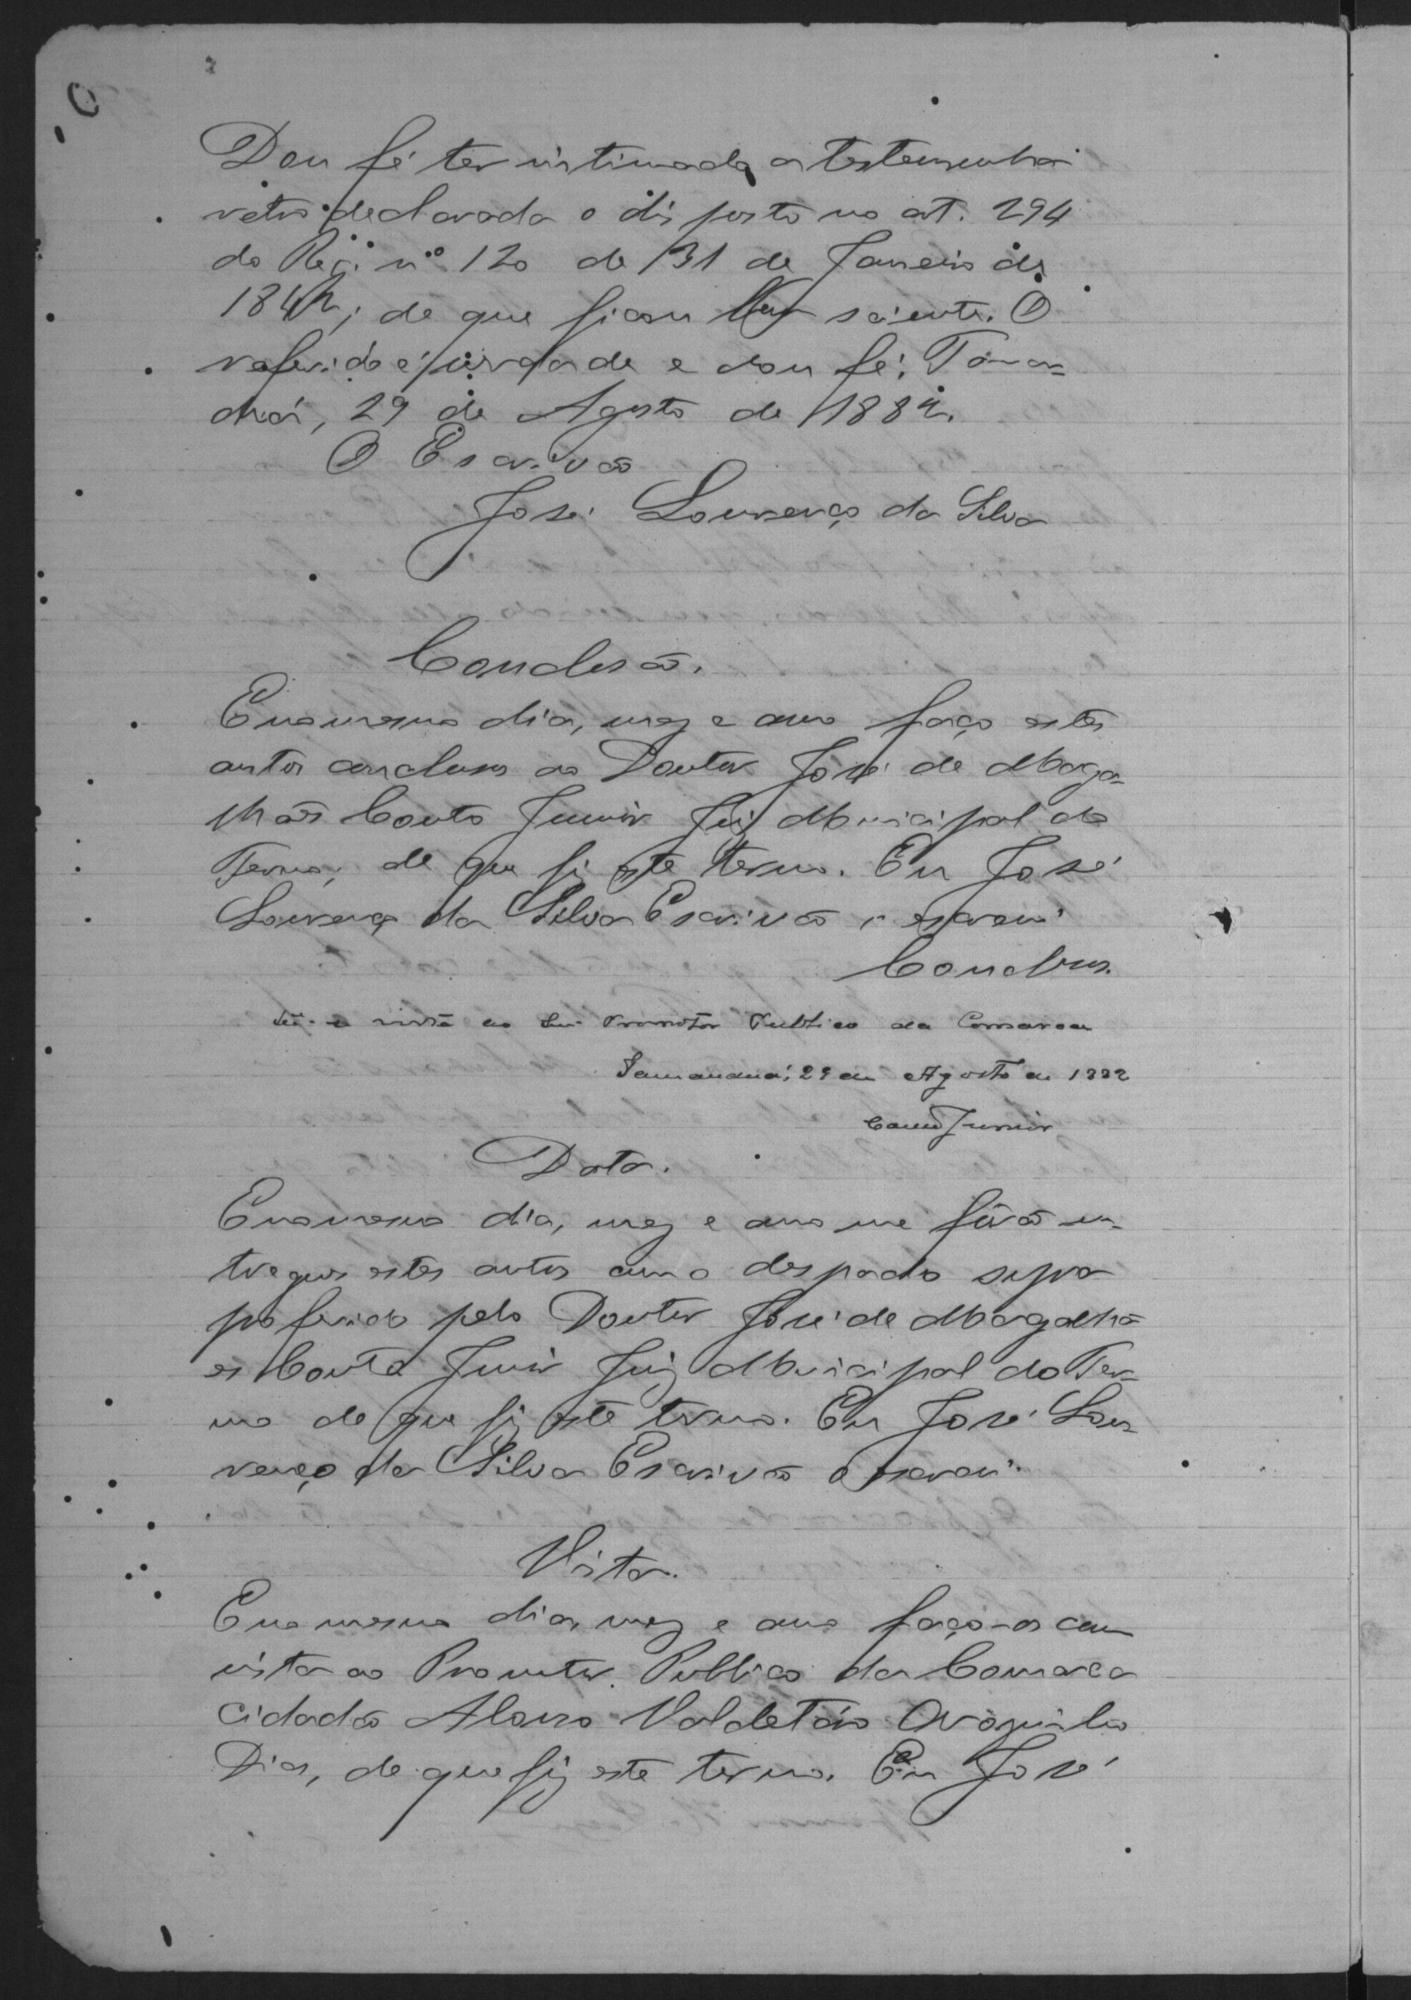 Dou fé ter intimado a testemunha
retro declarada o disposto no art. 294
do Reg. nº 120 de 31 de Janeiro de
1842; de que ficou bem sciente. O
referido é verdade e dou fé. Taman-
duá, 29 de Agosto de 1882.
O Escrivão
José Lourenço da Silva
Conclusão.
E no mesmo dia, mez e anno faço estes
autos conclusos ao Doutor José de Maga-
lhães Couto Junior Juiz Municipal do
Termo; de que fiz este termo. Eu José
Lourenço da Silva Escrivão o escrevi
Conclusos.
vista ao Snr. Promotor Publico da Comarca
Tamanduá, 29 de Agosto de 1882
Couto Junior
Data.
E no mesmo dia, mez e anno me fôrão en-
tregues estes autos com o despacho supra
proferido pelo Doutor José de Magalhã-
es Couto Junior Juiz Municipal do Ter-
mo de que fiz este termo. Eu José Lou-
renço da Silva Escrivão o escrevi.
Vista.
E no mesmo dia, mez e anno faço-os com
vista ao Promotor Publico da Comarca
Cidadão Alonso Valdetáro
Dias, de que fiz este termo. Eu José